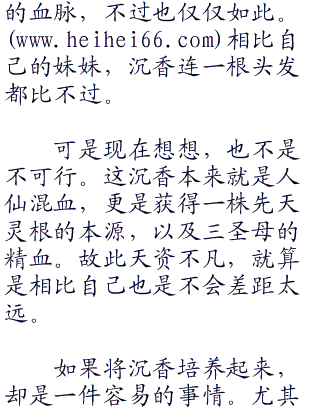 的血脉，不过也仅仅如此。
(www.heihei66.com)相比自
己的妹妹，沉香连一根头发
都比不过。
可是现在想想，也不是
不可行。这沉香本来就是人
仙混血，更是获得一株先天
灵根的本源，以及三圣母的
精血。故此天资不凡，就算
是相比自己也是不会差距太
远。
如果将沉香培养起来，
却是一件容易的事情。尤其